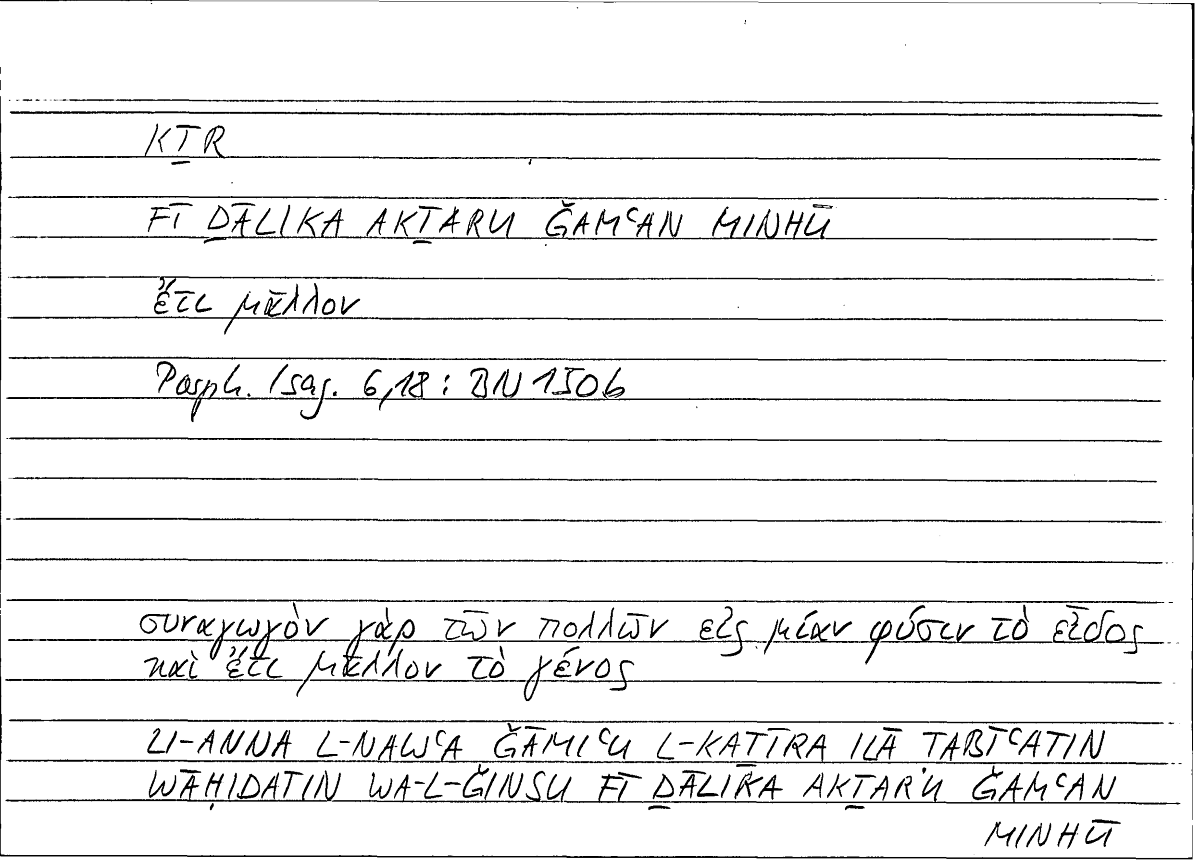 KṮR
FĪ ḎĀLIKA AKṮARU ǦAMʿAN MINHŪ
ἔτι μᾶλλον
Porph. Isag. 6,18 : BN 150b
συναγωγὸν γὰρ τῶν πολλῶν εἰς μίαν φύσιν τὸ εἶδος
καὶ ἔτι μᾶλλον τὸ γένος
LI-ANNA L-NAWʿA ǦĀMIʿU L-KATĪRA ILĀ TABĪʿATIN
WĀḤIDATIN WA-L-ǦINSU FĪ ḎĀLIKA AKṮARU ǦAMʿAN
MINHŪ